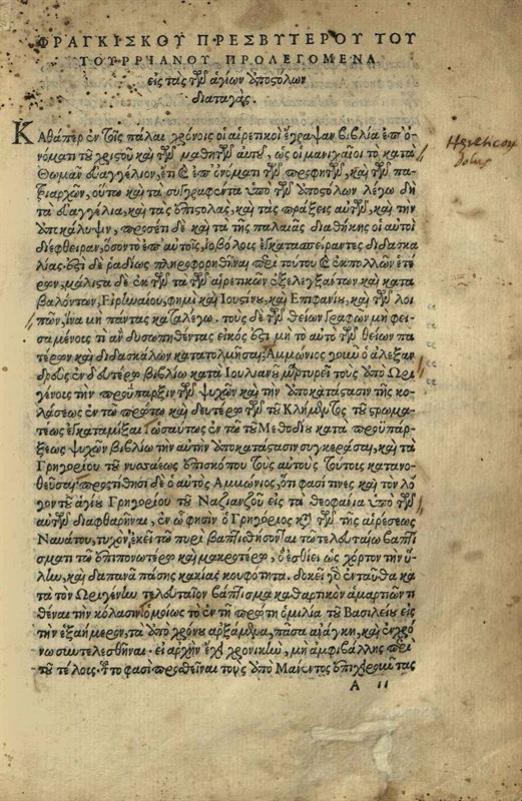 ΦΡΑΓΚΙΣΚΟΥ ΠΡΕΣΒΥΤΕΡΟΥ ΤΟΥ
ΤΟΥΡΡΙΑΝΟΥ ΠΡΟΛΕΓΟΜΕΝΑ
εἰς τὰς τῶν ἁγίων ἀποστόλων
διαταγάς.
Καθάπερ ἐν τοῖς πάλαι χρόνοις οἱ αἱρετικοὶ ἔγραψαν βιβλία ἐπ' ὀ-
νόματι τοῦ χριστοῦ καὶ τῶν μαθητῶν αὐτοῦ, ὡς οἱ μανιχαῖοι τὸ κατὰ
Θωμᾶν εὐαγγέλιον, ἔτι καὶ ἐπ' ὀνόματι τῶν προφητῶν, καὶ τῶν πα-
τριαρχῶν, οὕτω καὶ τὰ συγγραφέντα ὑπὸ τῶν ἀποστόλων λέγω δὴ
τὰ εὐαγγέλια, καὶ τὰς ἐπιστολὰς, καὶ τὰς πράξεις αὐτῶν, καὶ τὴν
ἀποκάλυψιν, προσέτι δὲ καὶ τὰ τῆς παλαιᾶς διαθήκης οἱ αὐτοὶ
διέφθειραν, ὅσον τὸ ἐπ' αὐτοῖς, ἰοβόλοις ἐγκατασπείραντες διδασκα-
λίας. ἔστι δὲ ῥᾳδίως πληροφορηθῆναι περὶ τούτου καὶ ἐκ πολλῶν ἑτέ-
ρων, μάλιστα δὲ ἐκ τῶν τὰ τῶν αἱρετικῶν ἐξελεγξάντων καὶ κατα-
βαλόντων, Εἰρηναίου, φημὶ καὶ Ἰουστίνου καὶ Ἐπιφανίου, καὶ τῶν λοι
πῶν, ἵνα μὴ πάντας καταλέγω. τοὺς δὲ τῶν θείων γραφῶν μὴ φει-
σαμένοις τί ἂν δυσωπηθέντας εἰκὸς ἔστι μὴ τὸ αὐτὸ τῶν θείων πα
τέρων καὶ διδασκάλων κατατολμῆσαι; Ἀμμώνιος γοῦν ὁ ἀλεξαν
δρεὺς ἐν δευτέρῳ βιβλίῳ κατὰ Ἰουλιανοῦ μαρτυρεῖ τοὺς ἀπὸ Ὠρι
γένους τὴν προΰπαρξιν τῶν ψυχῶν καὶ τὴν ἀποκατάστασιν τῆς κο-
λάσεως ἐν τῷ πρώτῳ καὶ δευτέρῳ τῶν τοῦ Κλήμεντος τοῦ στρωμα-
τέως ἐγκαταμίξαι· ὡσαύτως ἐν τῷ τοῦ Μεθοδίου κατὰ προϋπάρ-
ξεως ψυχῶν βιβλίῳ τὴν αὐτὴν ἀποκατάστασιν συγκεράσαι, καὶ τὰ
Γρηγορίου τοῦ νυσσαέως ἐπισκόπου τοὺς αὐτοὺς τούτοις κατανο-
θεῦσαι· προστίθησι δὲ ὁ αὐτὸς Ἀμμώνιος, ὅτι φασί τινες καὶ τὸν λό
γον τοῦ ἁγίου Γρηγορίου τοῦ Ναζιανζοῦ εἰς τὰ θεοφάνια ὑπὸ τῶν
αὐτῶν διαφθαρῆναι, ἐν ᾧ φησὶν ὁ Γρηγόριος κατὰ τῶν τῆς αἱρέσεως
Ναυάτου, τυχὸν, ἐκεῖ τῷ πυρὶ βαπτισθήσονται τῷ τελευταίῳ βαπτί-
σματι τῷ ἐπιπονωτέρῳ καὶ μακροτέρῳ, ὃ ἐσθίει ὡς χόρτον τὴν ὕ-
λην, καὶ δαπανᾷ πάσης κακίας κουφότητα. δοκεῖ γὰρ ἐνταῦθα κα
τὰ τὸν Ὠριγένην τελευταῖον βάπτισμα καθαρτικὸν ἁμαρτιῶν τι
θέναι τὴν κόλασιν· ὁμοίως τὸ ἐν τῇ πρώτῃ ὁμιλίᾳ τοῦ Βασιλείου εἰς
τὴν ἑξαήμερον, τὰ ἀπὸ χρόνου ἀρξάμενα, πᾶσα ἀνάγκη, καὶ ἐν χρό
νῳ συντελεσθῆναι. εἰ ἀρχὴν ἔχει χρονικὴν, μὴ ἀμφιβάλλῃς περὶ
τοῦ τέλους. τοῦτο φασὶ προσθεῖναι τοὺς ἀπὸ
A ii